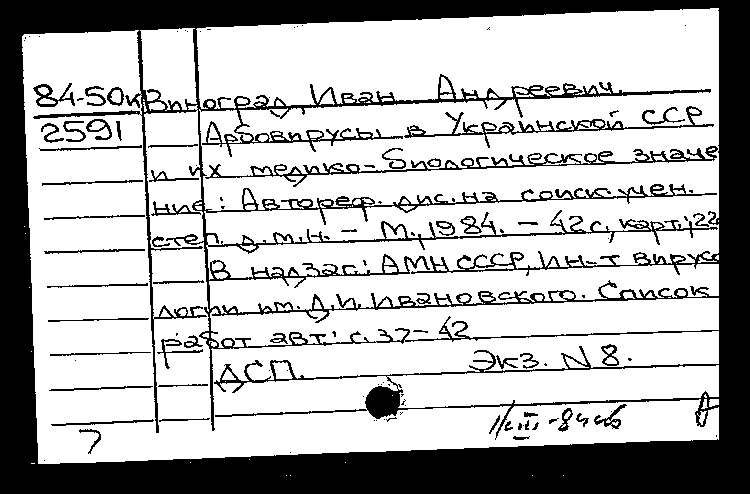 84-50к Виноград, Иван Андреевич.
2591 Арбовирусы в Украинской ССР
и их медико-биологическое значе
ние: Автореф. дис. на соиск. учен.
степ. д.м.н. - М., 1984. - 42 с., карт.; 22
В надзаг.: АМН СССР, Ин-т вирусо
логии им. Д.И. Ивановского. Список
работ авт.: с. 37-42.
ДСП. Экз. N 8.
7